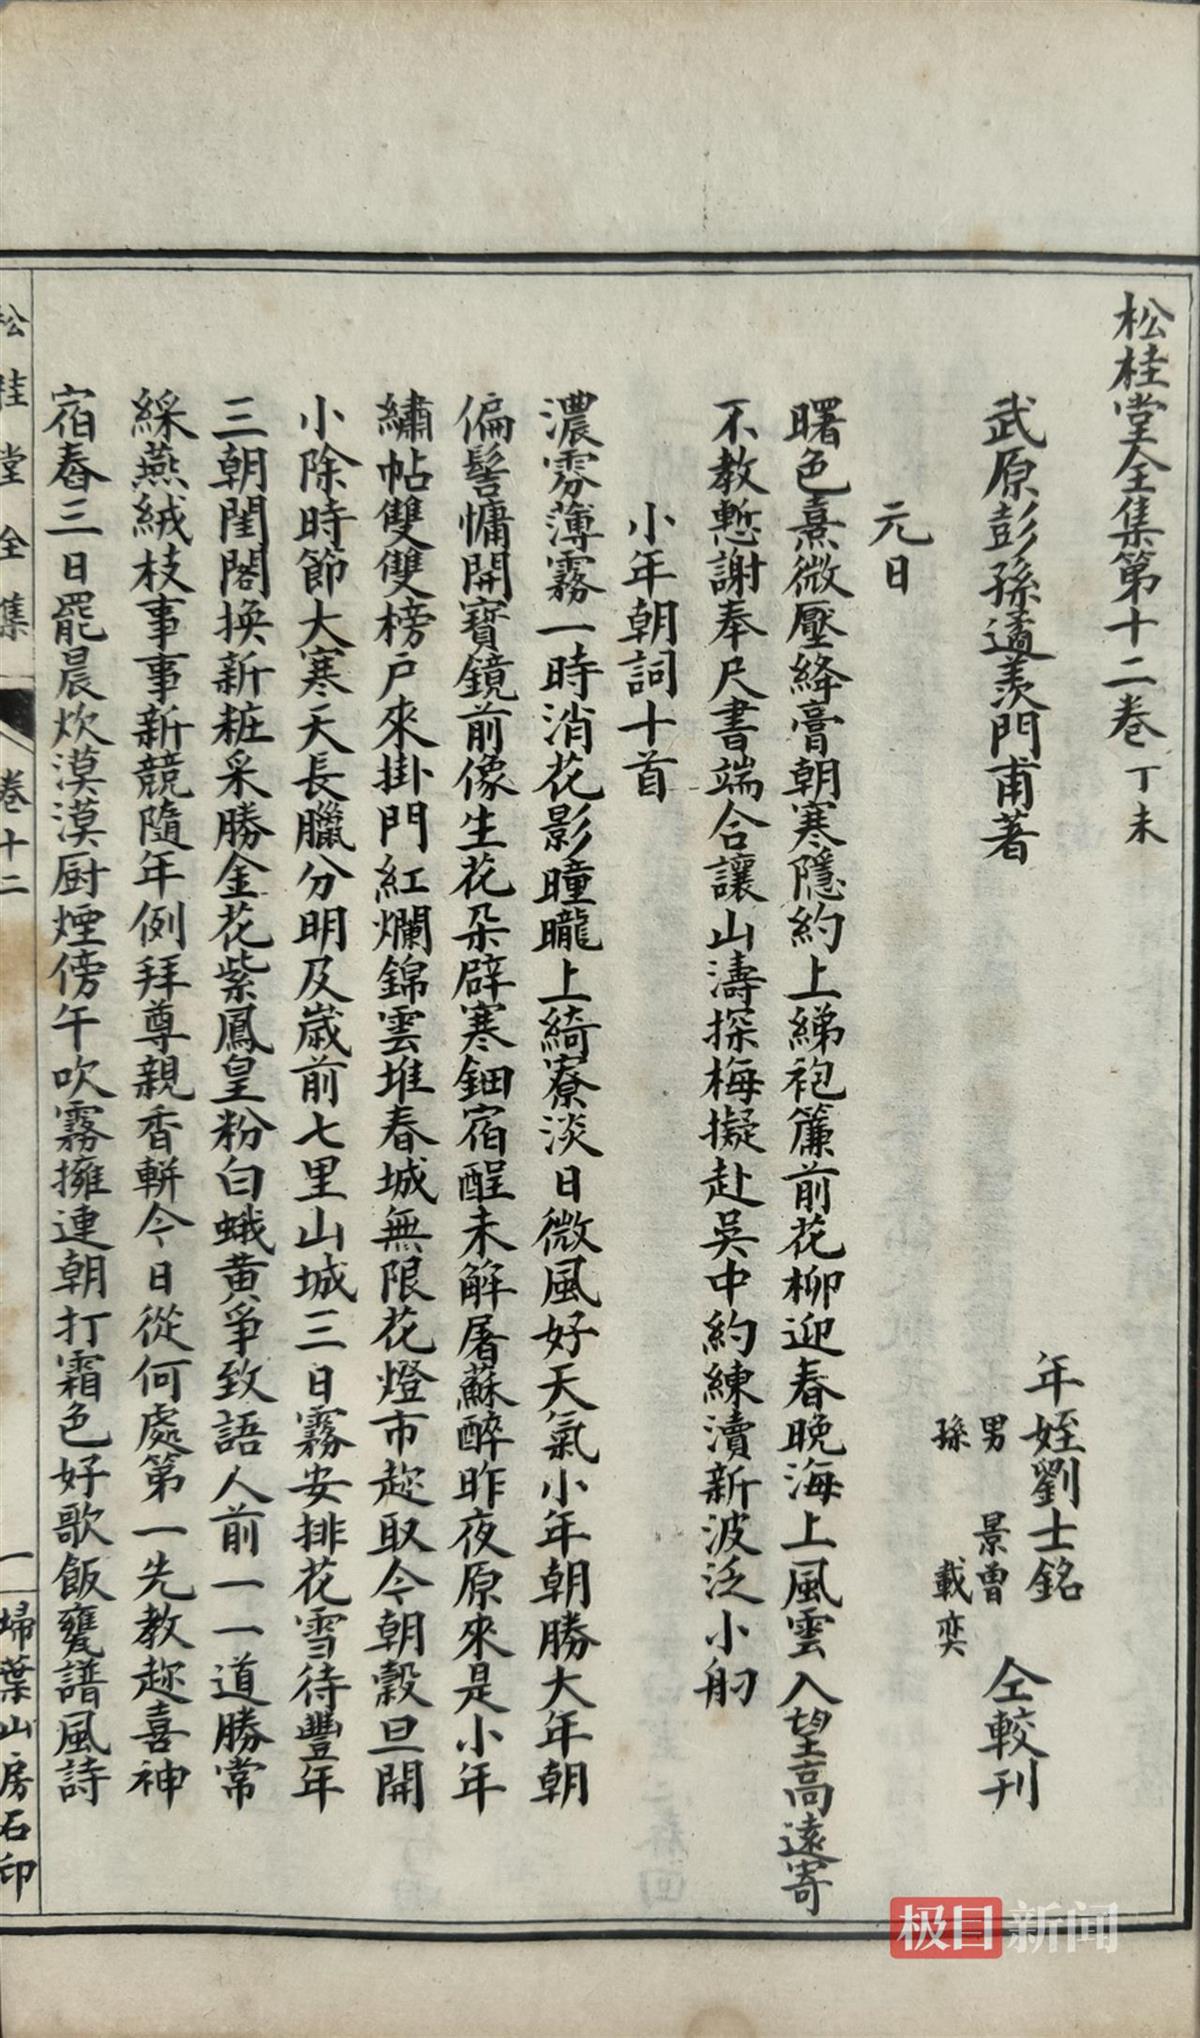 松桂堂全集第十二卷 丁未
年姪劉士銘
武原彭孫遹羨門甫著
男 景曾
仝較刊
孫 載奕
元日
曙色熹微壓絳膏朝寒隱約上綈袍簾前花柳迎春晚海上風雲入望高遠寄
不教慙謝奉尺書端合讓山濤探梅擬赴吳中約練瀆新波泛小舠
小年朝詞十首
濃雰薄霧一時消花影曈曨上綺寮淡日微風好天氣小年朝勝大年朝
偏髻慵開寶鏡前像生花朵辟寒鈿宿酲未解屠蘇醉昨夜原來是小年
繡帖雙雙榜戶來掛門紅爛錦雲堆春城無限花燈市趂取今朝穀旦開
小除時節大寒天長臘分明及歲前七里山城三日霧安排花雪待豐年
三朝閨閣換新粧采勝金花紫鳳皇粉白蛾黃爭致語人前一一道勝常
綵燕絨枝事事新競隨年例拜尊親香軿今日從何處第一先教趂喜神
宿舂三日罷晨炊漠漠厨煙傍午吹霧擁連朝打霜色好歌飯甕譜風詩
松桂堂全集 卷十二 一 掃葉山房石印
极目新闻